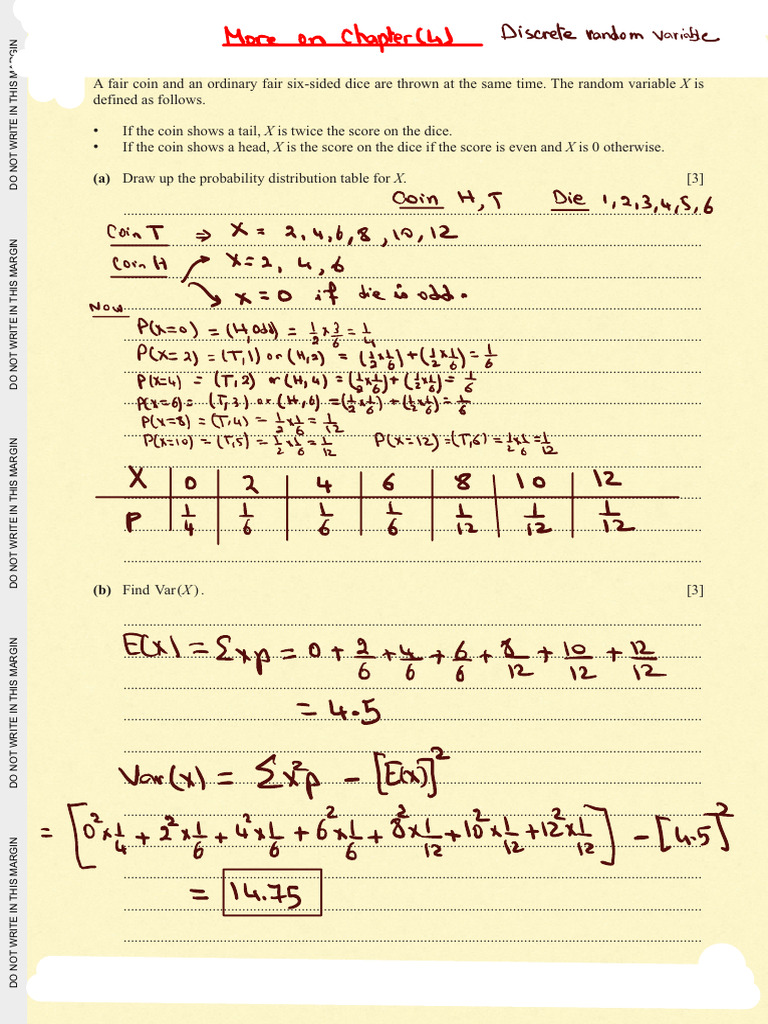 More on Chapter(4) Discrete random variable
A fair coin and an ordinary fair six-sided dice are thrown at the same time. The random variable X is
defined as follows.
• If the coin shows a tail, X is twice the score on the dice.
• If the coin shows a head, X is the score on the dice if the score is even and X is 0 otherwise.
(a) Draw up the probability distribution table for X. [3]
Coin H, T Die 1,2,3,4,5,6
Coin T ⇒ X = 2,4,6,8,10,12
Coin H X=2, 4, 6
X=0 if die is odd.
Now
P(X=0) = (H,odd) = 1/2 × 3/6 = 1/4
P(X=2) = (T,1) or (H,2) = (1/2×1/6)+(1/2×1/6) = 1/6
P(X=4) = (T,2) or (H,4) = (1/2×1/6)+(1/2×1/6) = 1/6
P(X=6) = (T,3) or (H,6) = (1/2×1/6)+(1/2×1/6) = 1/6
P(X=8) = (T,4) = 1/2×1/6 = 1/12
P(X=10) = (T,5) = 1/2×1/6 = 1/12 P(X=12) = (T,6) = 1/2×1/6 = 1/12
X 0 2 4 6 8 10 12
P 1/4 1/6 1/6 1/6 1/12 1/12 1/12
(b) Find Var(X). [3]
E(X) = Σxp = 0 + 2/6 + 4/6 + 6/6 + 8/12 + 10/12 + 12/12
= 4.5
Var(X) = Σx²p − [E(X)]²
= [0²×1/4 + 2²×1/6 + 4²×1/6 + 6²×1/6 + 8²×1/12 + 10²×1/12 + 12²×1/12] − [4.5]²
= 14.75
DO NOT WRITE IN THIS MARGIN
DO NOT WRITE IN THIS MARGIN
DO NOT WRITE IN THIS MARGIN
DO NOT WRITE IN THIS MARGIN
DO NOT WRITE IN THIS MARGIN